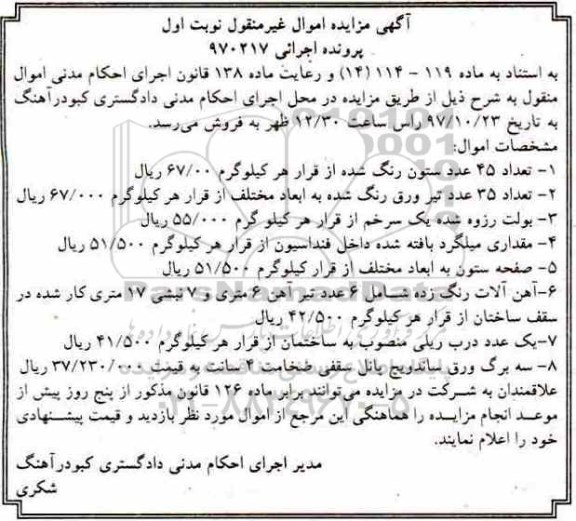 آگهی مزایده اموال غیرمنقول نوبت اول
پرونده اجرائی ۹۷۰۲۱۷
به استناد به ماده ۱۱۹ - ۱۱۴ (۱۴) و رعایت ماده ۱۳۸ قانون اجرای احکام مدنی اموال
منقول به شرح ذیل از طریق مزایده در محل اجرای احکام مدنی دادگستری کبودرآهنگ
به تاریخ ۹۷/۱۰/۲۳ راس ساعت ۱۲/۳۰ ظهر به فروش می‌رسد.
مشخصات اموال:
۱- تعداد ۴۵ عدد ستون رنگ شده از قرار هر کیلوگرم ۶۷/۰۰ ریال
۲- تعداد ۳۵ عدد تیر ورق رنگ شده به ابعاد مختلف از قرار هر کیلوگرم ۶۷/۰۰۰ ریال
۳- بولت رزوه شده یک سرخم از قرار هر کیلو گرم ۵۵/۰۰۰ ریال
۴- مقداری میلگرد بافته شده داخل فنداسیون از قرار هر کیلوگرم ۵۱/۵۰۰ ریال
۵- صفحه ستون به ابعاد مختلف از قرار کیلوگرم ۵۱/۵۰۰ ریال
۶-آهن آلات رنگ زده شامل ۶ عدد تیر آهن ۶ متری و ۷ نبشی ۱۷ متری کار شده در
سقف ساختان از قرار هر کیلوگرم ۴۲/۵۰۰ ریال
۷-یک عدد درب ریلی منصوب به ساختمان از قرار هر کیلوگرم ۴۱/۵۰۰ ریال
۸- سه برگ ورق ساندویچ پانل سقفی ضخامت ۴ سانت به قیمت ۳۷/۲۳۰/۰۰۰ ریال
علاقمندان به شرکت در مزایده می‌توانند برابر ماده ۱۲۶ قانون مذکور از پنج روز پیش از
موعد انجام مزایده را هماهنگی این مرجع از اموال مورد نظر بازدید و قیمت پیشنهادی
خود را اعلام نمایند.
مدیر اجرای احکام مدنی دادگستری کبودرآهنگ
شکری
ParsNamadData
۰۲۱-۸۸۳۴۹۶۷۰-۵